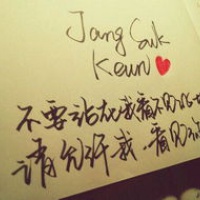 Jang Suk
Keun
不要站在我看不见的
请允许我看见你